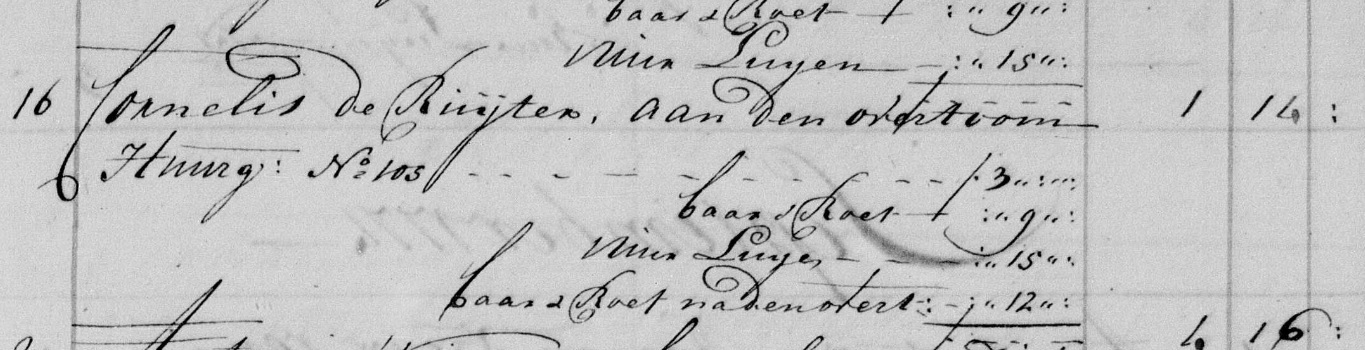 baar & Roef ƒ :" 9":
Luyen :" 15":
16 Cornelis de Ruÿter, aan den overtoom 1 14:
Huurg: No 105 ƒ 3":":
baar & Roef ƒ :" 9":
Luye :" 15":
baar & Roef na den overt: :" 12":
4 16: